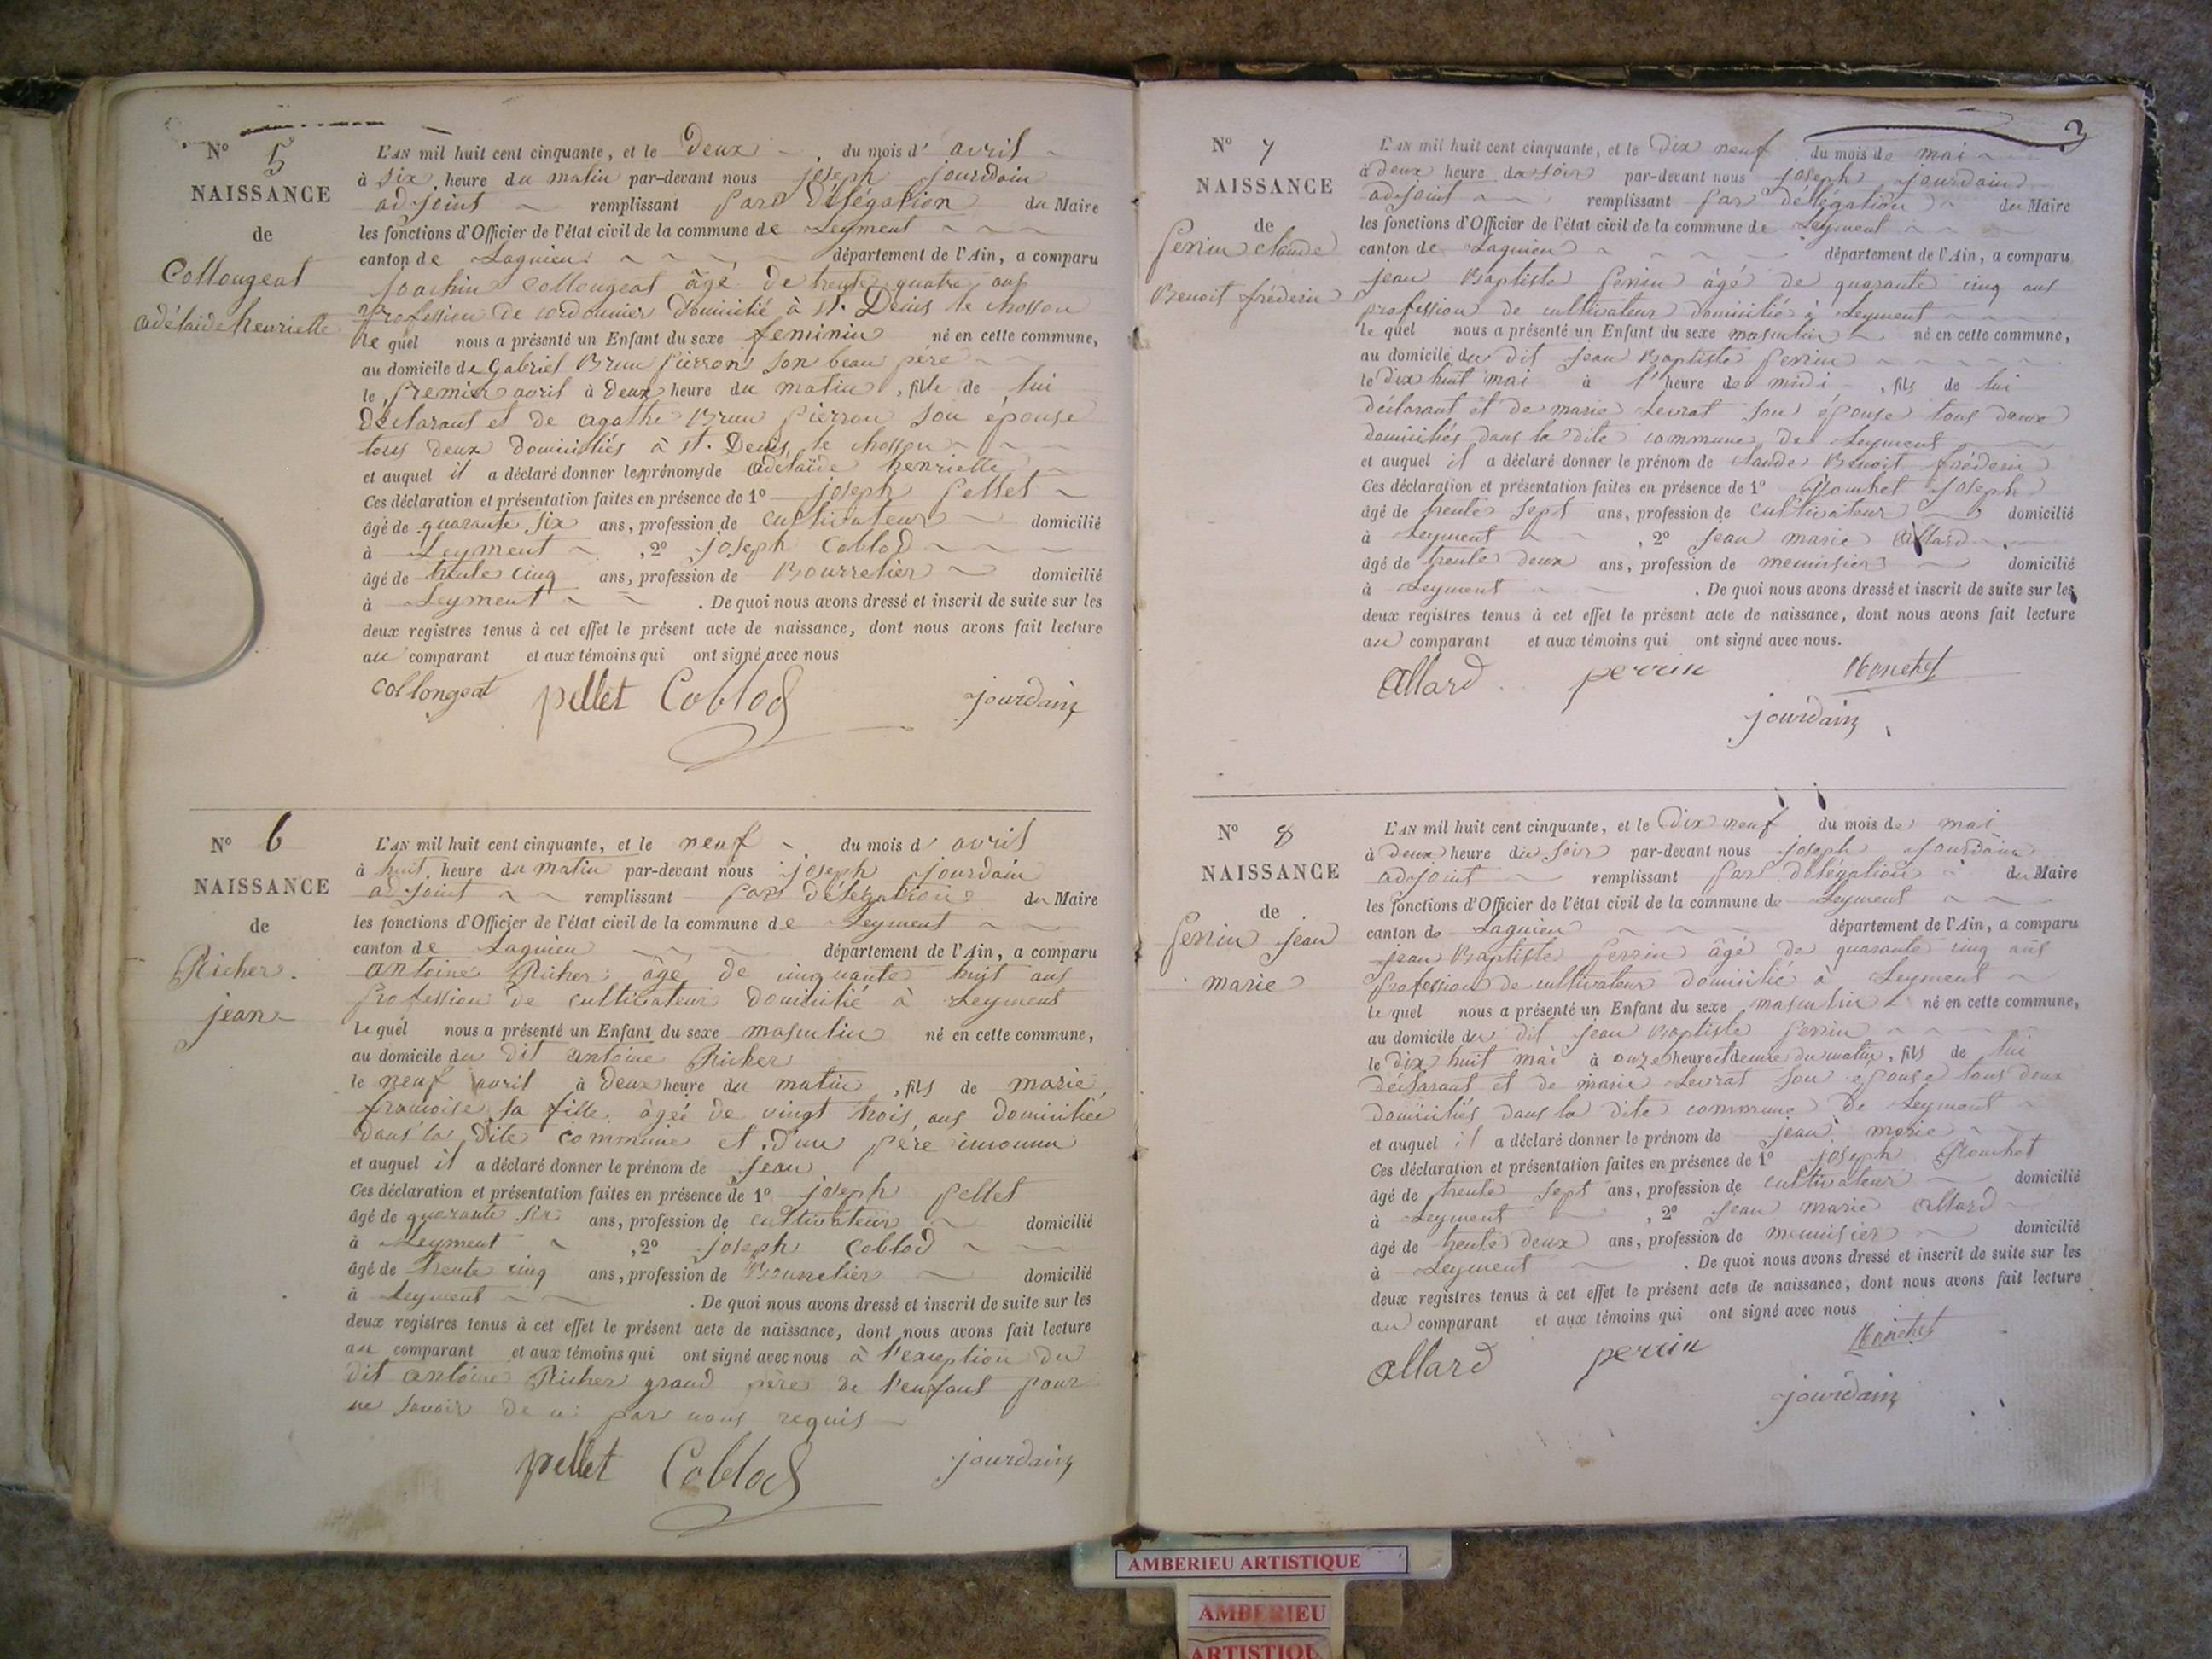 N° 5
NAISSANCE
de
Collongeat
adélaide henriette
L'AN mil huit cent cinquante, et le Deux du mois d' avril
à six heure du matin par-devant nous joseph jourdain
adjoint remplissant par Délégation du Maire
les fonctions d'Officier de l'état civil de la commune de Leyment
canton de Lagnieu département de l'Ain, a comparu
joachim Collongeat âgé de trente quatre ans
profession de cordonnier Domicilié à st. Denis le chosson
le quel nous a présenté un Enfant du sexe feminin né en cette commune,
au domicile de Gabriel Brun pierron son beau père
le premier avril à Deux heure du matin, fille de lui
Déclarant et de agathe Brun pierron son épouse
tous deux Domiciliés à st. Denis le chosson
et auquel il a déclaré donner les prénoms de adelaïde henriette
Ces déclaration et présentation faites en présence de 1° joseph pellet
âgé de quarante six ans, profession de cultivateur domicilié
à Leyment, 2° joseph Coblod
âgé de trente cinq ans, profession de Bourrelier domicilié
à Leyment. De quoi nous avons dressé et inscrit de suite sur les
deux registres tenus à cet effet le présent acte de naissance, dont nous avons fait lecture
au comparant et aux témoins qui ont signé avec nous
collongeat pellet Coblod jourdain
N° 6
NAISSANCE
de
Richer
jean
L'AN mil huit cent cinquante, et le neuf du mois d' avril
à huit heure du matin par-devant nous joseph jourdain
adjoint remplissant par Délégation du Maire
les fonctions d'Officier de l'état civil de la commune de Leyment
canton de Lagnieu département de l'Ain, a comparu
antoine Richer âgé de cinquante huit ans
profession de cultivateur Domicilié à Leyment
le quel nous a présenté un Enfant du sexe masculin né en cette commune,
au domicile du dit antoine Richer
le neuf avril à Deux heure du matin, fils de marie
francoise sa fille âgée de vingt trois ans Domiciliée
dans la Dite commune et d'un père inconnu
et auquel il a déclaré donner le prénom de jean
Ces déclaration et présentation faites en présence de 1° joseph pellet
âgé de quarante six ans, profession de cultivateur domicilié
à Leyment, 2° joseph Coblod
âgé de trente cinq ans, profession de Bourrelier domicilié
à Leyment. De quoi nous avons dressé et inscrit de suite sur les
deux registres tenus à cet effet le présent acte de naissance, dont nous avons fait lecture
au comparant et aux témoins qui ont signé avec nous à l'exception du
dit antoine Richer grand père de l'enfant pour
ne savoir de ce par nous requis
pellet Coblod jourdain
3
N° 7
NAISSANCE
de
perrin claude
Benoit fréderic
L'AN mil huit cent cinquante, et le Dix neuf du mois de mai
à deux heure du soir par-devant nous joseph jourdain
adjoint remplissant par délégation du Maire
les fonctions d'Officier de l'état civil de la commune de Leyment
canton de Lagnieu département de l'Ain, a comparu
jean Baptiste perrin âgé de quarante cinq ans
profession de cultivateur domicilié à Leyment
le quel nous a présenté un Enfant du sexe masculin né en cette commune,
au domicile du dit jean Baptiste perrin
le Dix huit mai à l'heure de midi, fils de lui
déclarant et de marie Levrat son épouse tous deux
domiciliés dans la dite commune de Leyment
et auquel il a déclaré donner le prénom de claude Benoit fréderic
Ces déclaration et présentation faites en présence de 1° joseph
âgé de trente sept ans, profession de cultivateur domicilié
à Leyment, 2° jean marie allard
âgé de trente deux ans, profession de menuisier domicilié
à Leyment. De quoi nous avons dressé et inscrit de suite sur les
deux registres tenus à cet effet le présent acte de naissance, dont nous avons fait lecture
au comparant et aux témoins qui ont signé avec nous.
allard perrin
jourdain
N° 8
NAISSANCE
de
perrin jean
marie
L'AN mil huit cent cinquante, et le Dix neuf du mois de mai
à deux heure du soir par-devant nous joseph jourdain
adjoint remplissant par délégation du Maire
les fonctions d'Officier de l'état civil de la commune de Leyment
canton de Lagnieu département de l'Ain, a comparu
jean Baptiste perrin âgé de quarante cinq ans
profession de cultivateur domicilié à Leyment
le quel nous a présenté un Enfant du sexe masculin né en cette commune,
au domicile du dit jean Baptiste perrin
le Dix huit mai à onze heure et demie du matin, fils de lui
déclarant et de marie Levrat son épouse tous deux
domiciliés dans la dite commune de Leyment
et auquel il a déclaré donner le prénom de jean marie
Ces déclaration et présentation faites en présence de 1° joseph
âgé de trente sept ans, profession de cultivateur domicilié
à Leyment, 2° jean marie allard
âgé de trente deux ans, profession de menuisier domicilié
à Leyment. De quoi nous avons dressé et inscrit de suite sur les
deux registres tenus à cet effet le présent acte de naissance, dont nous avons fait lecture
au comparant et aux témoins qui ont signé avec nous
allard perrin
jourdain
AMBERIEU ARTISTIQUE
AMBERIEU
ARTISTIQU